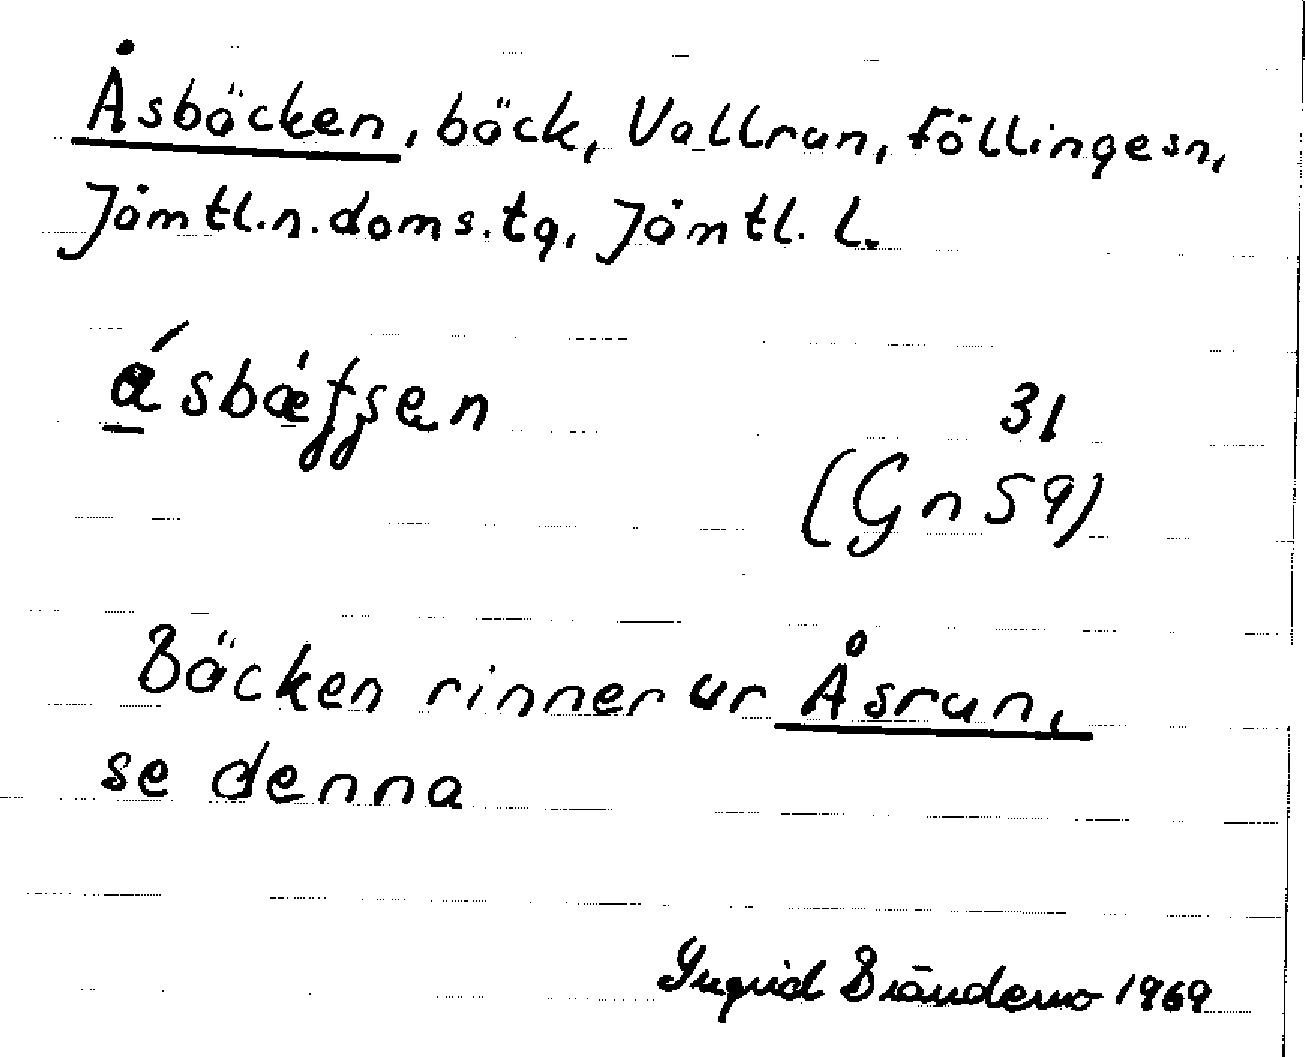 Åsbäcken, bäck, Vallrun, Föllingesn,
Jämtl.n.doms.tg, Jämtl. l.
ásbǽʃʃen
31
(Gn 59)
Bäcken rinner ur Åsrun,
se denna
Ingrid Brändemo 1969